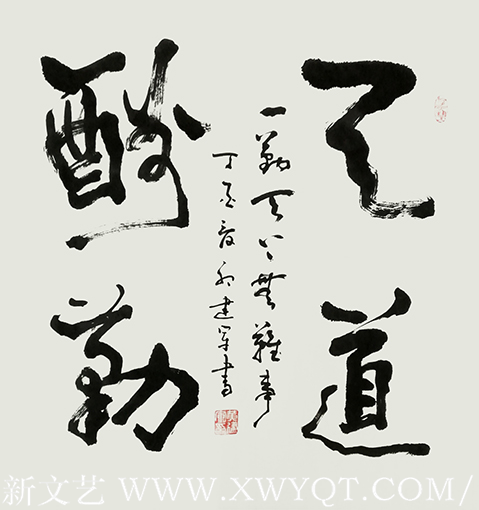 天道
酬勤
一勤天下無難事
丁 建軍書
新文艺 WWW.XWYQT.COM/